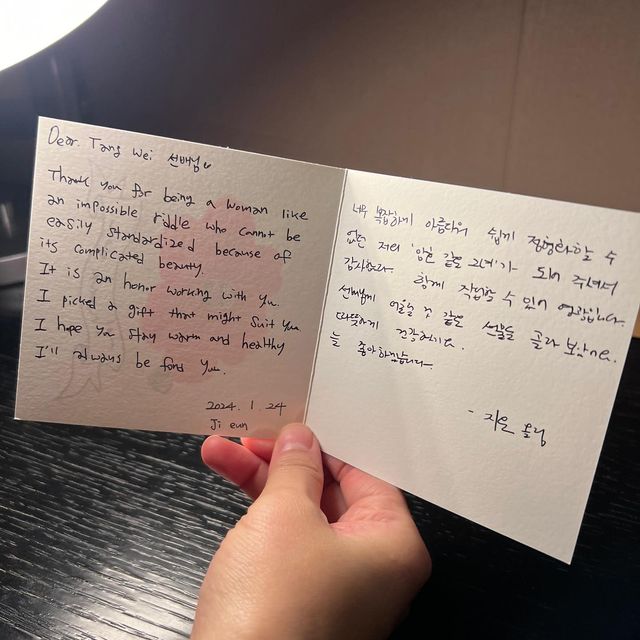 Dear. Tang Wei 선배님
Thank you for being a woman like
an impossible riddle who cannot be
easily standardized because of
its complicated beauty.
It is an honor working with you.
I picked a gift that might suit you
I hope you stay warm and healthy
I'll always be fond you.
2024. 1. 24
Ji eun
너무 복잡하게 아름다워 쉽게 정형화할 수
없는 저의 '암호 같은 그녀'가 되어 주셔서
감사합니다. 함께 작업할 수 있어 영광입니다.
선배님께 어울릴 것 같은 선물을 골라 보았어요.
따뜻하게 건강하세요.
늘 좋아하겠습니다.
- 지은 올림